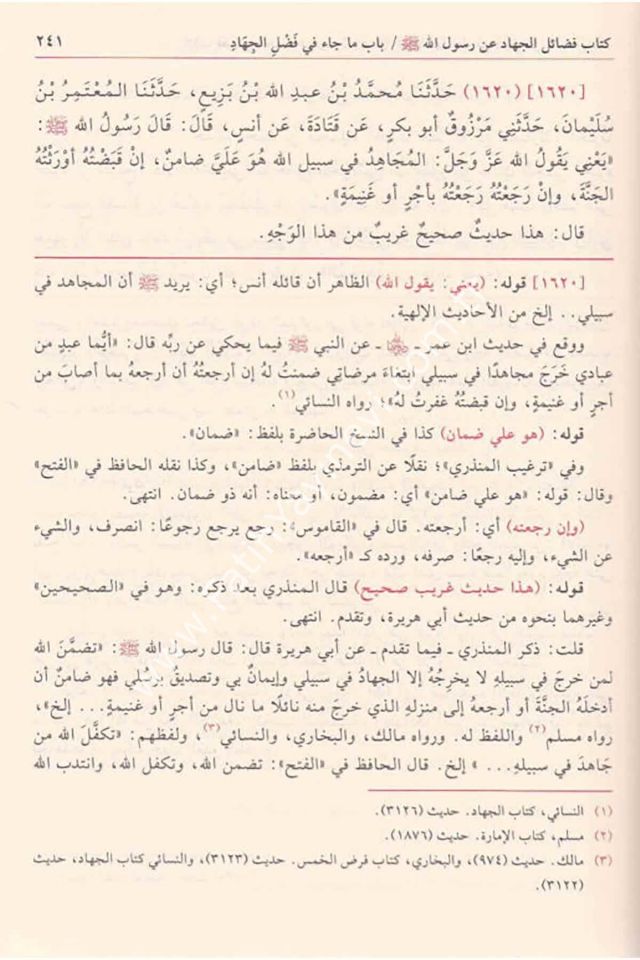 كتاب فضائل الجهاد عن رسول الله ﷺ / باب ما جاء في فَضْلِ الجِهَادِ ٢٤١
[١٦٢٠] (١٦٢٠) حَدَّثَنَا مُحمَّدُ بْنُ عبدِ الله بْنُ بَزِيعٍ، حَدَّثَنَا المُعْتَمِرُ بْنُ
سُلَيْمانَ، حَدَّثَنِي مَرْزُوقٌ أبو بكرٍ، عَن قَتَادَةَ، عَن أنسٍ، قَالَ: قَالَ رَسُولُ الله ﷺ:
«يَعْنِي يَقُولُ الله عَزَّ وَجَلَّ: المُجَاهِدُ في سبيل الله هُوَ عَلَيَّ ضامنٌ، إنْ قَبَضْتُهُ أوْرَثْتُهُ
الجَنَّةَ، وإنْ رَجَعْتُهُ رَجَعْتُهُ بأجْرٍ أو غَنِيمَةٍ».
قال: هذا حديثٌ صحيحٌ غريبٌ من هذا الوَجْهِ.
[١٦٢٠] قوله: (يعني: يقول الله) الظاهر أن قائله أنس؛ أي: يريد ﷺ أن المجاهد في
سبيلي.. إلخ من الأحاديث الإلهية.
ووقع في حديث ابن عمر ـ ﷺ ـ عن النبي ﷺ فيما يحكي عن ربِّه قال: «أيُّما عبدٍ من
عبادي خَرَجَ مجاهدًا في سبيلي ابتغاءَ مرضاتي ضمنتُ لهُ إن أرجعتُهُ أن أرجعهُ بما أصابَ من
أجرٍ أو غنيمةٍ، وإن قبضتُهُ غفرتُ لهُ»؛ رواه النسائي(١).
قوله: (هو علي ضمان) كذا في النسخ الحاضرة بلفظ: «ضمان».
وفي «ترغيب المنذري»؛ نقلًا عن الترمذي بلفظ «ضامن»، وكذا نقله الحافظ في «الفتح»
وقال: قوله: «هو علي ضامن» أي: مضمون، أو معناه: أنه ذو ضمان. انتهى.
(وإن رجعته) أي: أرجعته. قال في «القاموس»: رجع يرجع رجوعًا: انصرف، والشيء
عن الشيء، وإليه رجعًا: صرفه، ورده كـ «أرجعه».
قوله: (هذا حديث غريب صحيح) قال المنذري بعد ذكره: وهو في «الصحيحين»
وغيرهما بنحوه من حديث أبي هريرة، وتقدم. انتهى.
قلت: ذكر المنذري ـ فيما تقدم ـ عن أبي هريرة قال: قال رسول الله ﷺ: «تضمَّنَ الله
لمن خرجَ في سبيلهِ لا يخرجُهُ إلا الجهادُ في سبيلي وإيمانٌ بي وتصديقٌ برسُلي فهو ضامنٌ أن
أدخلَهُ الجنَّةَ أو أرجعهُ إلى منزلهِ الذي خرجَ منه نائلًا ما نال من أجرٍ أو غنيمةٍ... إلخ»،
رواه مسلم(٢) واللفظ له. ورواه مالك، والبخاري، والنسائي(٣)، ولفظهم: «تكفَّلَ الله من
جَاهدَ في سبيلهِ... » إلخ. قال الحافظ في «الفتح»: تضمن الله، وتكفل الله، وانتدب الله
(١) النسائي، كتاب الجهاد. حديث (٣١٢٦).
(٢) مسلم، كتاب الإمارة. حديث (١٨٧٦).
(٣) مالك. حديث (٩٧٤)، والبخاري، كتاب فرض الخمس. حديث (٣١٢٣)، والنسائي كتاب الجهاد، حديث
(٣١٢٢).